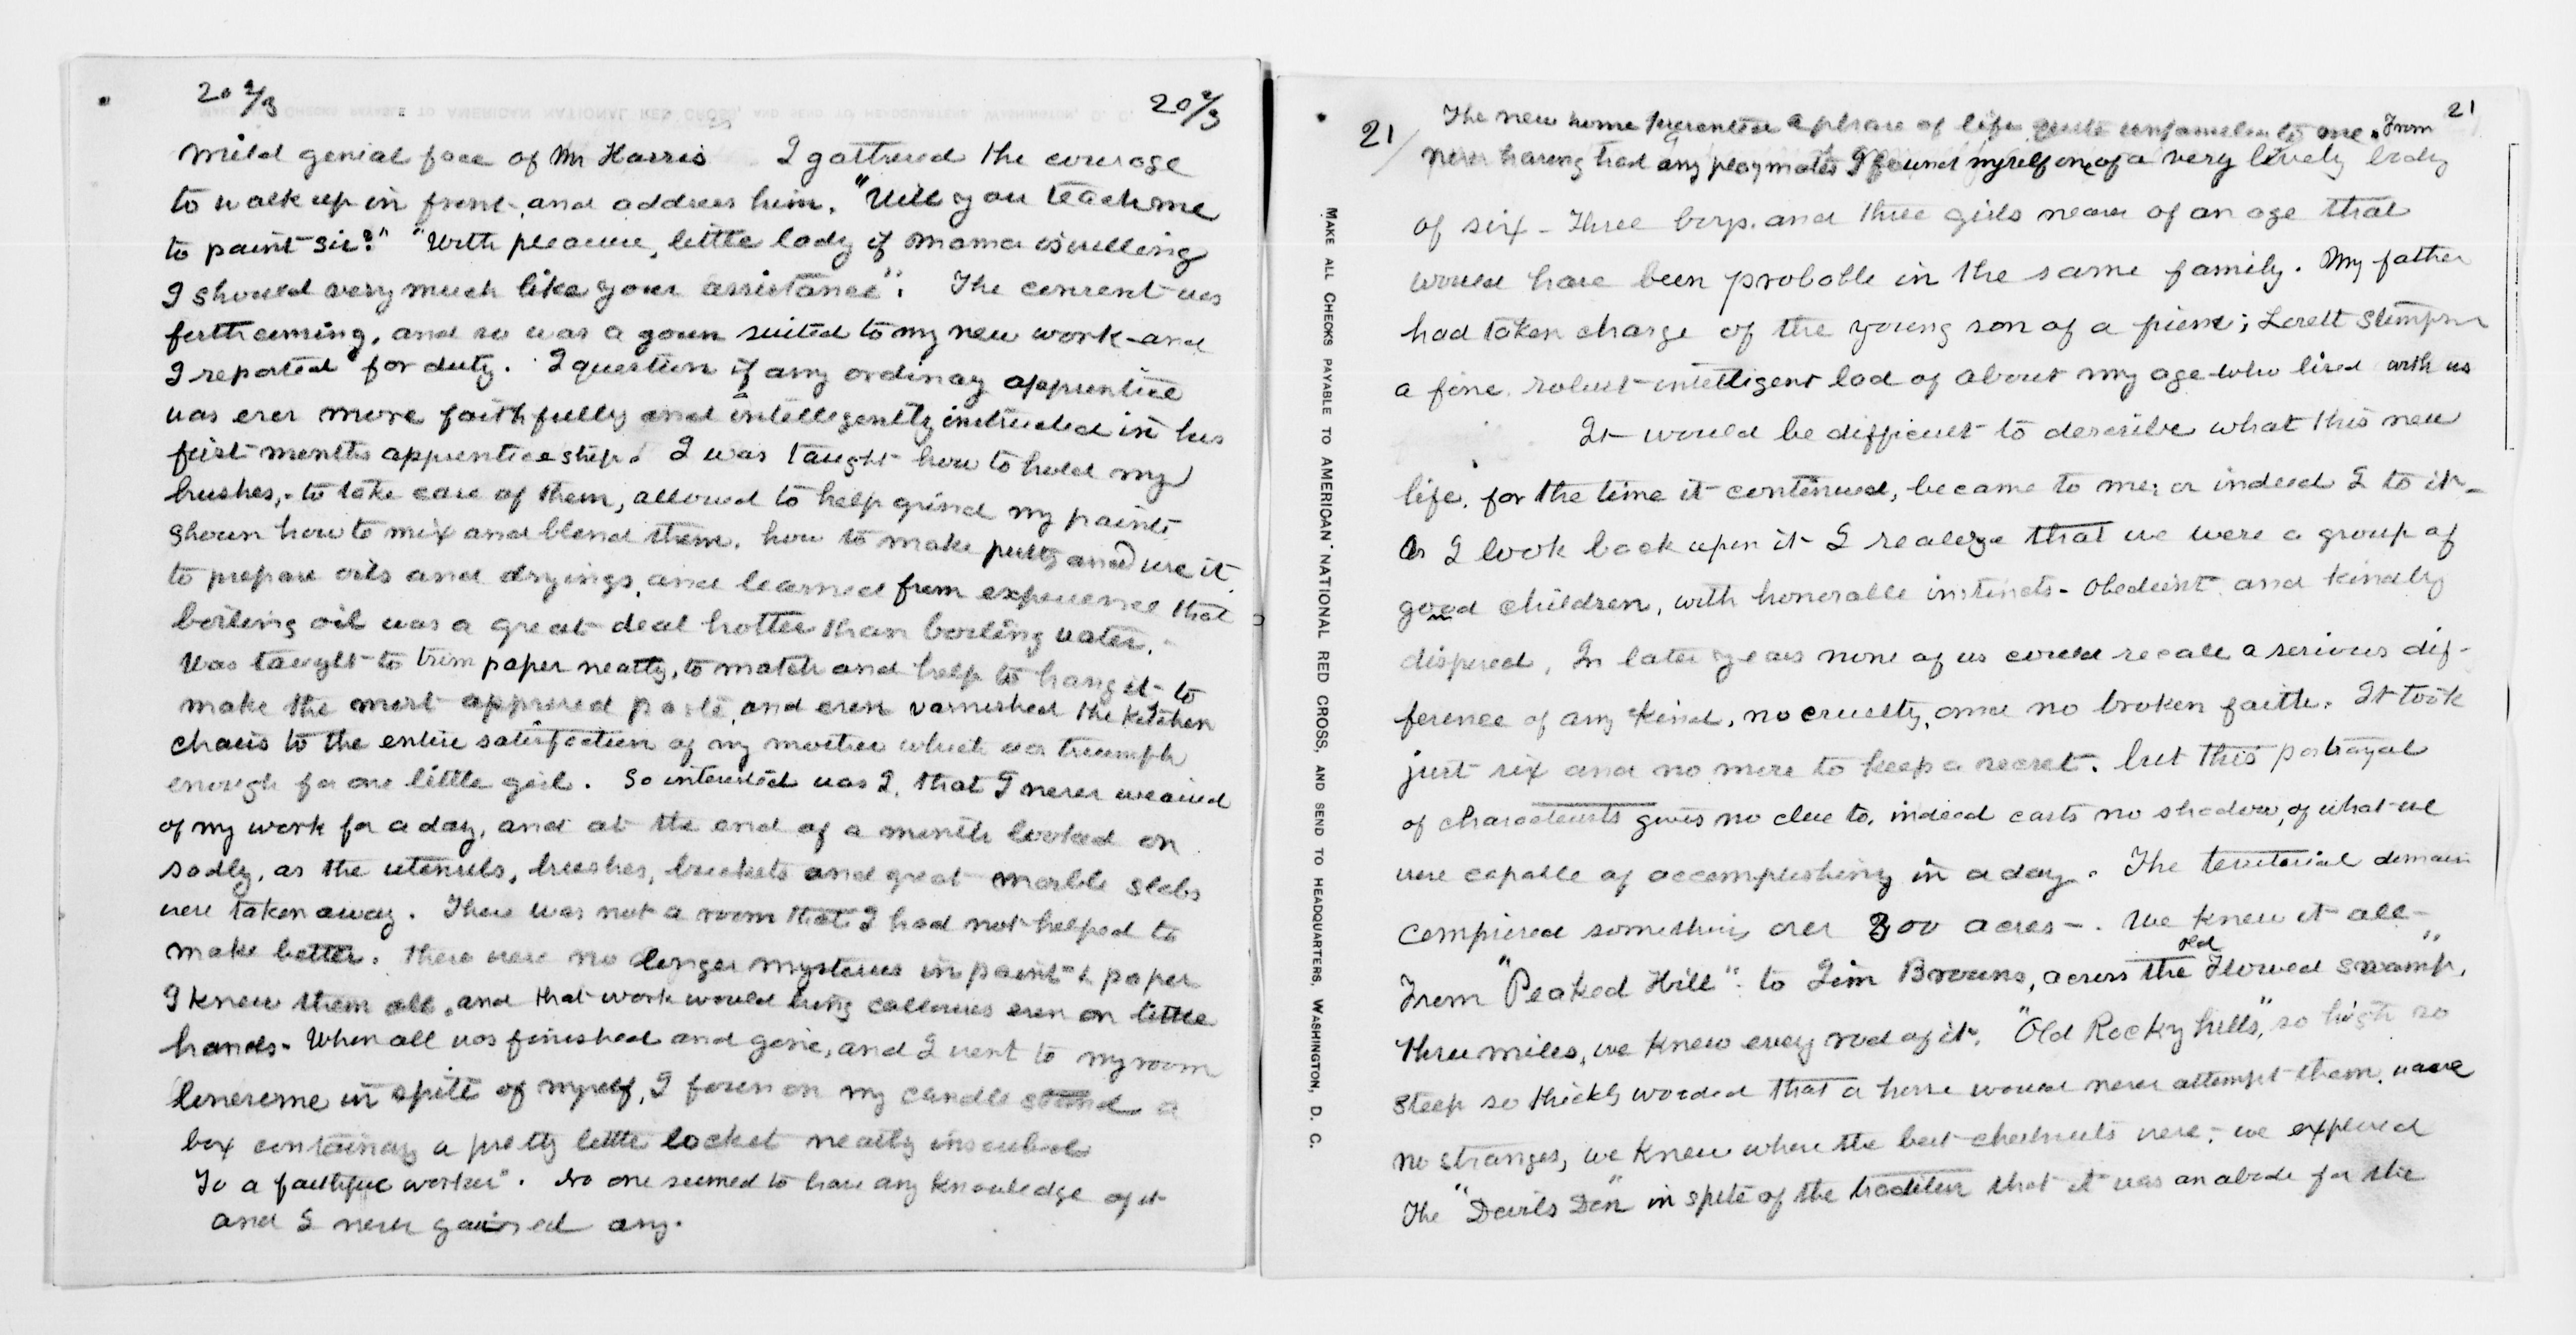 20 2/3
20 2/3
mild genial face of Mr Harris I gathered the courage
to walk up in front, and address him. "Will you teach me
to paint sir?" "With pleasure, little lady if mama is willing
I should very much like your assistance". The consent was
forthcoming, and so was a gown suited to my new work - and
I reported for duty. I question if any ordinay apprentice
was ever more faithfully and intelligently instructed in his
first months apprenticeship. I was taught how to hold my
brushes, to take care of them, allowed to help grind my paints
shown how to mix and blend them. how to make putty and use it
to prepare oils and dryings, and learned from experience that
boiling oil was a great deal hotter than boiling water.
Was taught to trim paper neatly, to match and help to hang it - to
make the most approved paste, and even varnished the kitchen
chairs to the entire satisfaction of my mother which was triumph
enough for one little girl. So interested was I, that I never wearied
of my work for a day, and at the end of a month looked on
sadly, as the utensils, brushes, buckets and great marble slabs
were taken away. There was not a room that I had not helped to
make better. there were no longer mysteries in paint & paper
I knew them all, and that work would bring callouses even on little
hands - When all was finished and gone, and I went to my room
lonesome in spite of myself, I found on my candle stand a
box containing a pretty little locket neatly inscribed
To a faithful worker". No one seemed to have any knowledge of it
and I never gained any.
MAKE ALL CHECKS PAYABLE TO AMERICAN NATIONAL RED CROSS, AND SEND TO HEADQUARTERS, WASHINGTON, D. C.
21
21
The new home presented a phrase of life quite unfamiliar to me. From
never having had any playmates I found myself one of a very lively body
of six - three boys. and three girls nearer of an age that
would have been probable in the same family. My father
had taken charge of the young son of a friend; Lovett Stimpson
a fine. robust intelligent lad of about my age who lived with us
It would be difficult to describe what this new
life, for the time it continued, became to me; or indeed I to it -
As I look back upon it I realize that we were a group of
good children, with honorable instincts - obedient and kindly
disposed, In later years none of us could recall a serious dif-
ference of any kind, no cruelty, and no broken faith. It took
just six and no more to keep a secret. but this portrayal
of characteristics gives no clue to, indeed casts no shadow, of what we
were capable of accomplishing in a day. The territorial domain
comprised something over 300 acres -. We knew it all -
From "Peaked Hill". to Jim Browns, across the old Flowed swamp,"
three miles, we knew every rod of it. "Old Rocky hills", so high so
steep so thickly wooded that a horse would never attempt them. were
no stranges, we knew where the best chestnuts were; we explored
The "Devils Den" in spite of the tradition that it was an abode for the